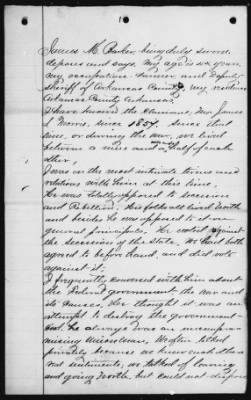 James M. Baker, being duly sworn
deposes and says. My age is six years,
my occupation farmer and Deputy
Sheriff of Arkansas County, my residence
Arkansas County Arkansas.
I have known the claimant, Mr. James
Morris, since 1857. Since that
time, or during the war, we lived
between a mile and a half of each
other.
I was on the most intimate terms and
relations with him at this time.
He was totally opposed to secession
and Rebellion. His folks all lived North
and besides he was opposed to it on
general principles. He voted against
the secession of the State. We had both
agreed to beforehand, and did vote
against it.
I frequently conversed with him about
the General government the war and
its causes. He thought it was an
attempt to destroy the government
but he always was an uncompro-
mising Union man. We often talked
privately because we knew each other's
sentiments; we talked of leaving
and going North, but could not dispose